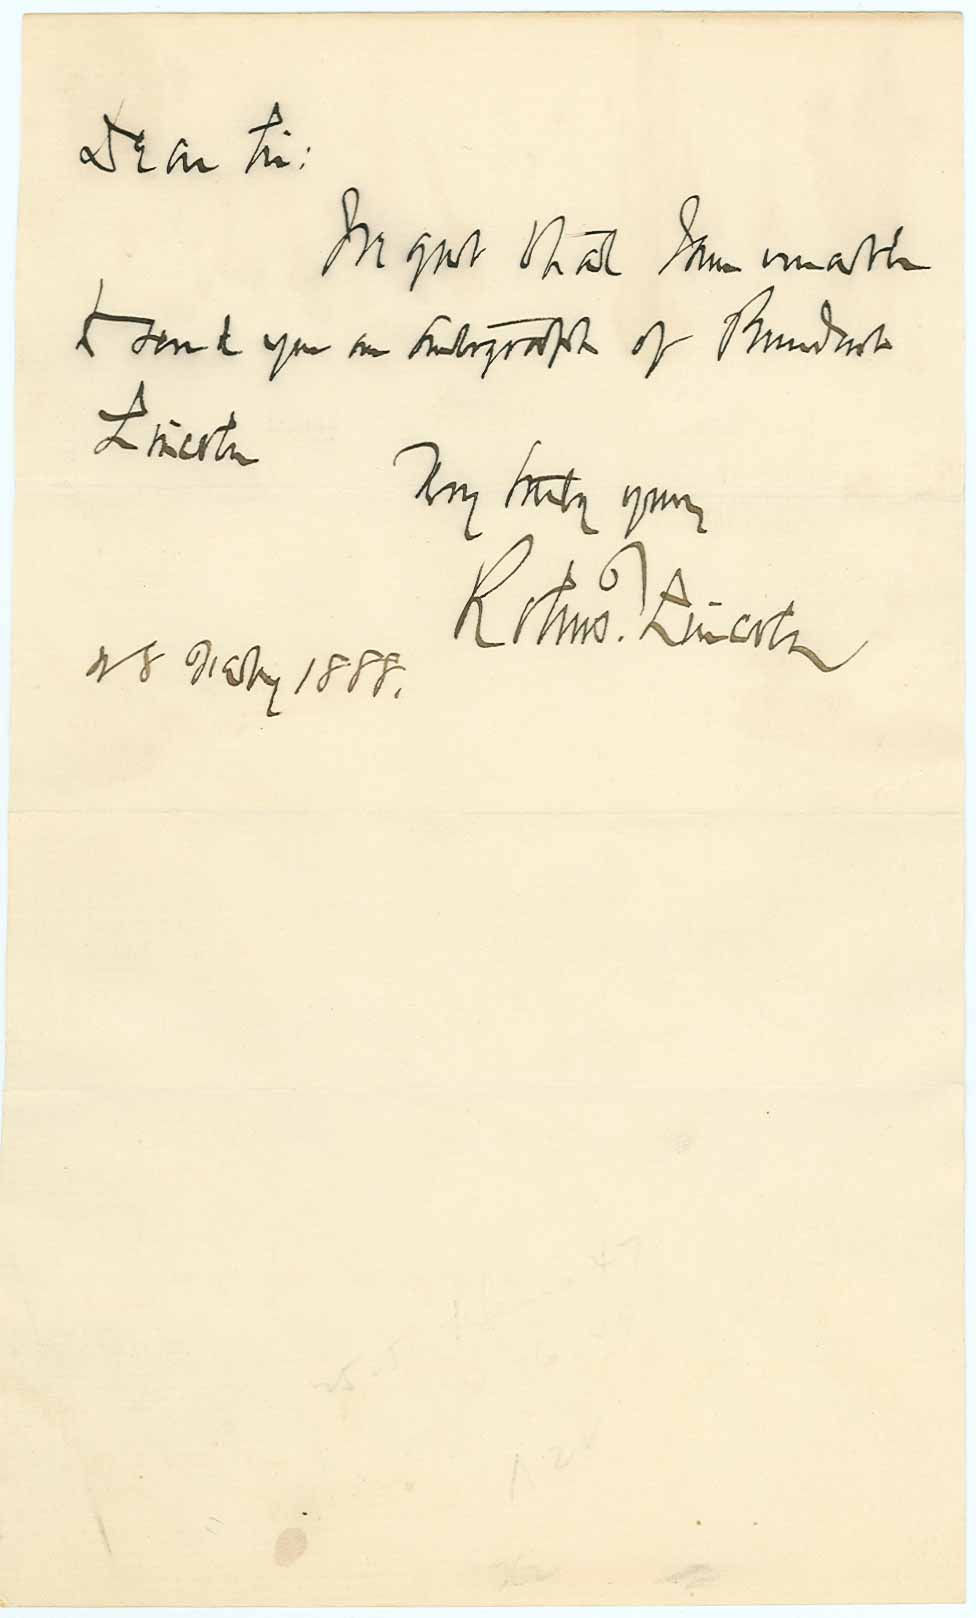 Dear Sir:
I regret that I am unable
to send you an autograph of President
Lincoln
Very truly yours
Robert T. Lincoln
28 Feby 1888.